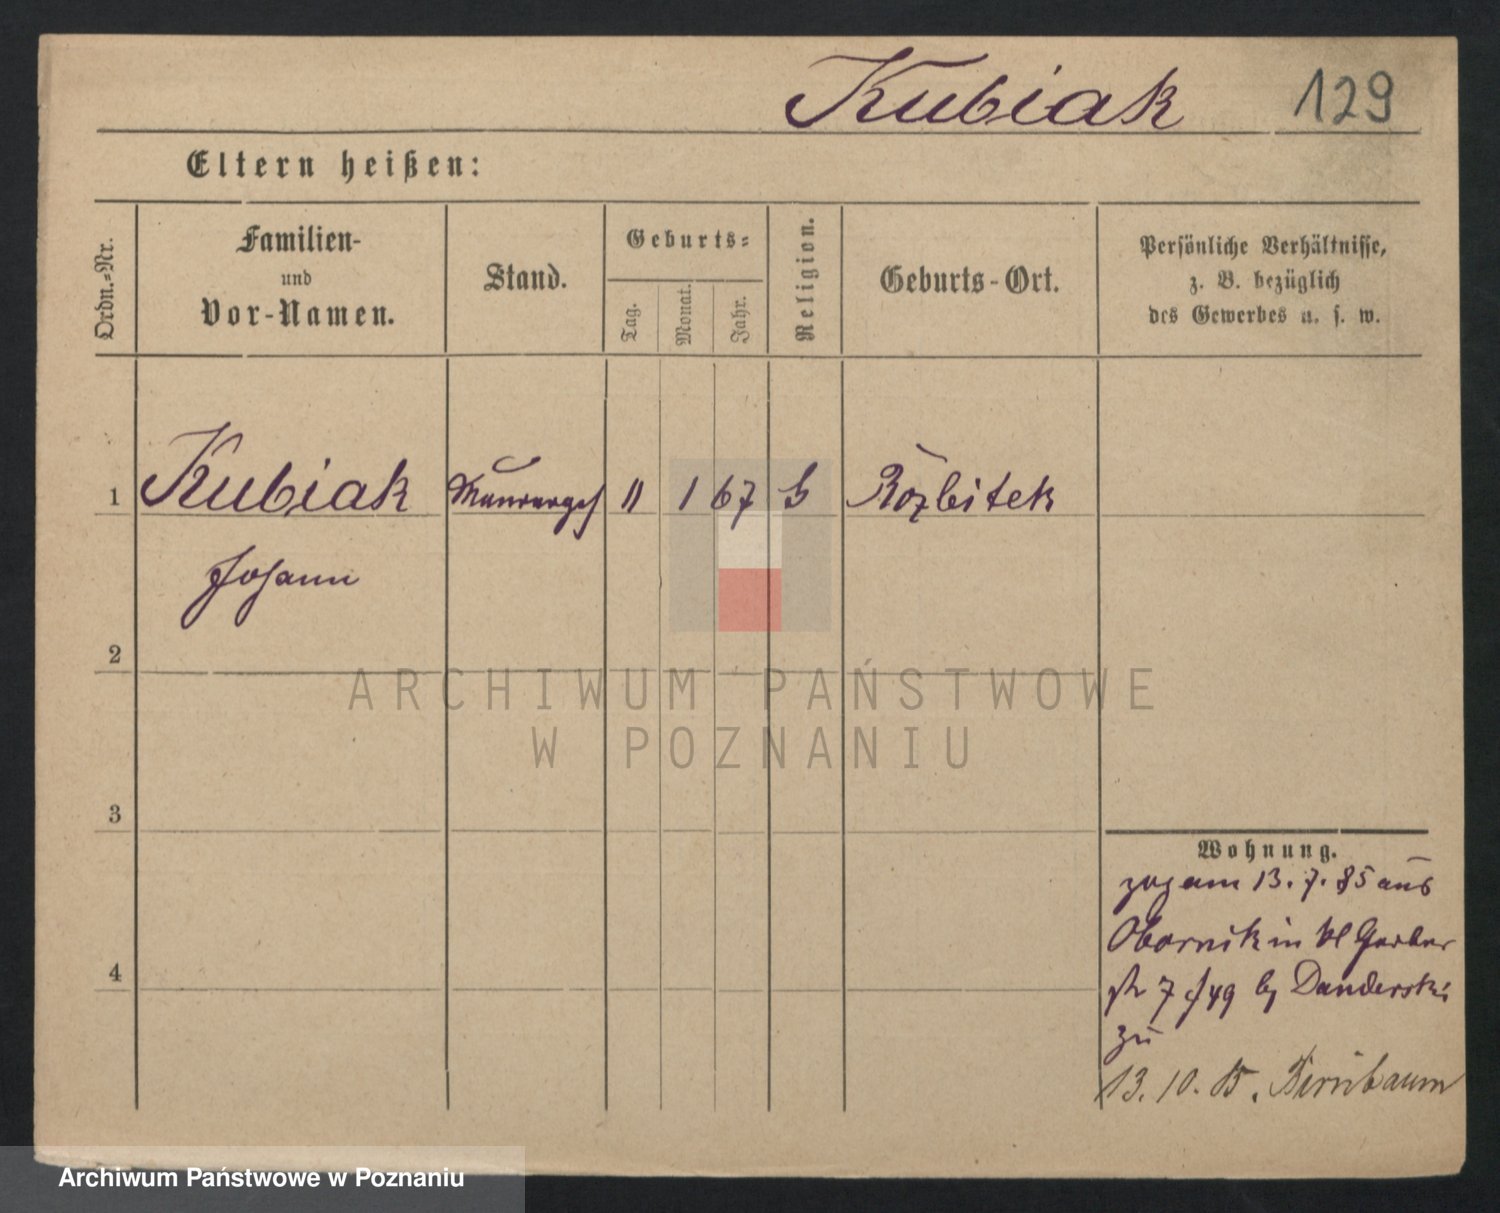 Kubiak 129
Eltern heißen:
Ordn.-Nr.
Familien-
und
Vor-Namen.
Stand.
Geburts-
Tag.
Monat.
Jahr.
Religion.
Geburts-Ort.
Persönliche Verhältnisse,
z. B. bezüglich
des Gewerbes u. s. w.
1 Kubiak Maurergs 11 1 67 Rozbitek
Johann
2
ARCHIWUM PAŃSTWOWE
W POZNANIU
3
Wohnung.
zog am 13. 7. 85 aus
Obornik in kl Gerber
str 7 by Danderski
zu
13. 10. 85. Birnbaum
4
Archiwum Państwowe w Poznaniu